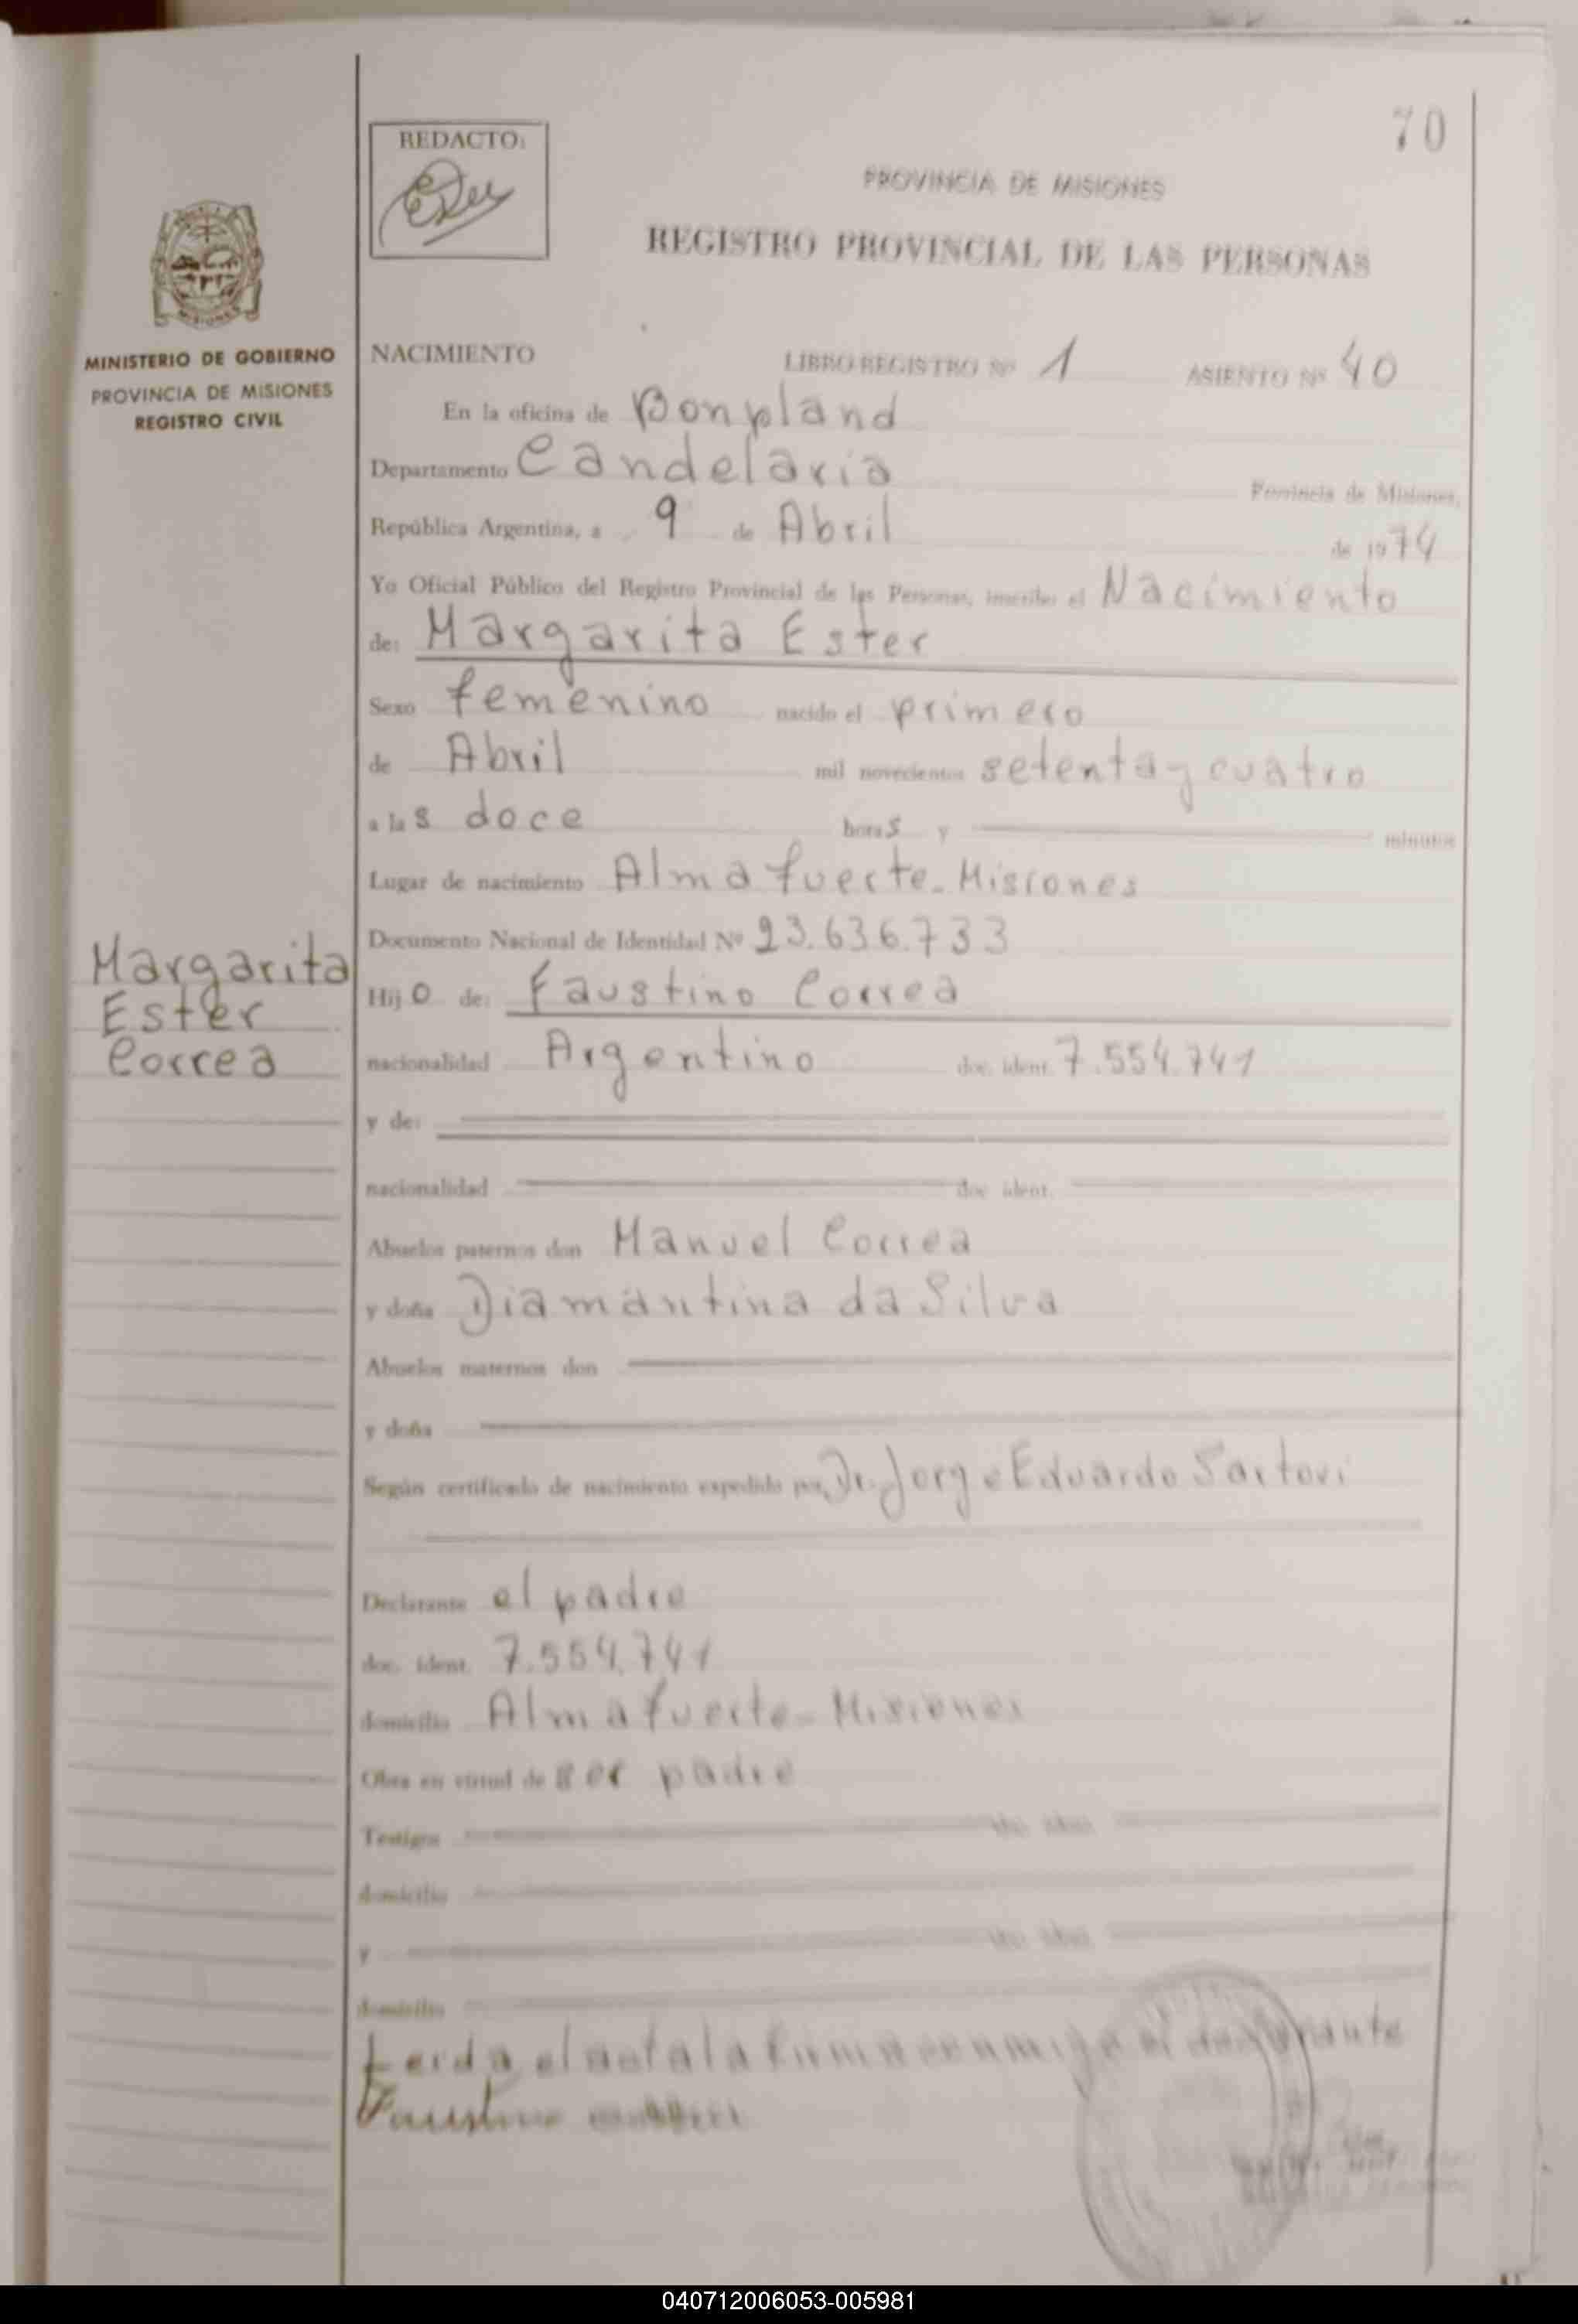 70
REDACTO:
PROVINCIA DE MISIONES
REGISTRO PROVINCIAL DE LAS PERSONAS
MISIONES
MINISTERIO DE GOBIERNO
PROVINCIA DE MISIONES
REGISTRO CIVIL
NACIMIENTO LIBRO REGISTRO Nº 1 ASIENTO Nº 40
En la oficina de Bonpland
Departamento Candelaria Provincia de Misiones,
República Argentina, a 9 de Abril de 1974
Yo Oficial Público del Registro Provincial de las Personas, inscribo el Nacimiento
de: Margarita Ester
Sexo femenino nacido el primero
de Abril mil novecientos setenta y cuatro
a las doce horas y minutos
Lugar de nacimiento Almafuerte - Misiones
Documento Nacional de Identidad Nº 23.636.733
Margarita
Ester
Correa
Hijo de: Faustino Correa
nacionalidad Argentino doc. ident. 7.554.741
y de:
nacionalidad doc. ident.
Abuelos paternos don Manuel Correa
y doña Diamantina da Silva
Abuelos maternos don
y doña
Según certificado de nacimiento expedido por Dr. Jorge Eduardo Sartori
Declarante el padre
doc. ident. 7.554.741
domicilio Almafuerte - Misiones
Obra en virtud de ser padre
Testigos
domicilio
y
domicilio
Leida el acta la firma conmigo el declarante
Faustino
040712006053-005981